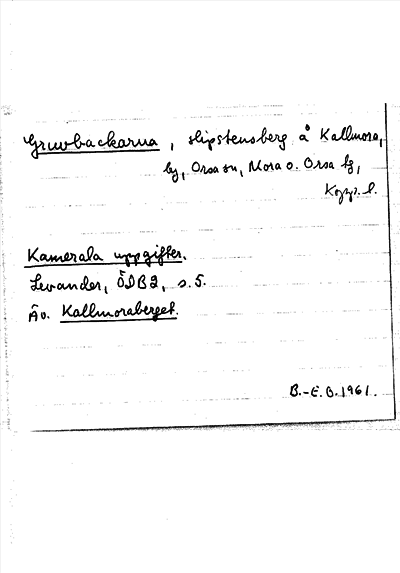 Gruvbackarna, slipstensberg å Kallmora,
by, Orsa sn, Mora o. Orsa tg,
Kopp. l.
Kamerala uppgifter.
Levander, ÖDB2, s. 5.
Äv. Kallmoraberget.
B.-E. O. 1961.